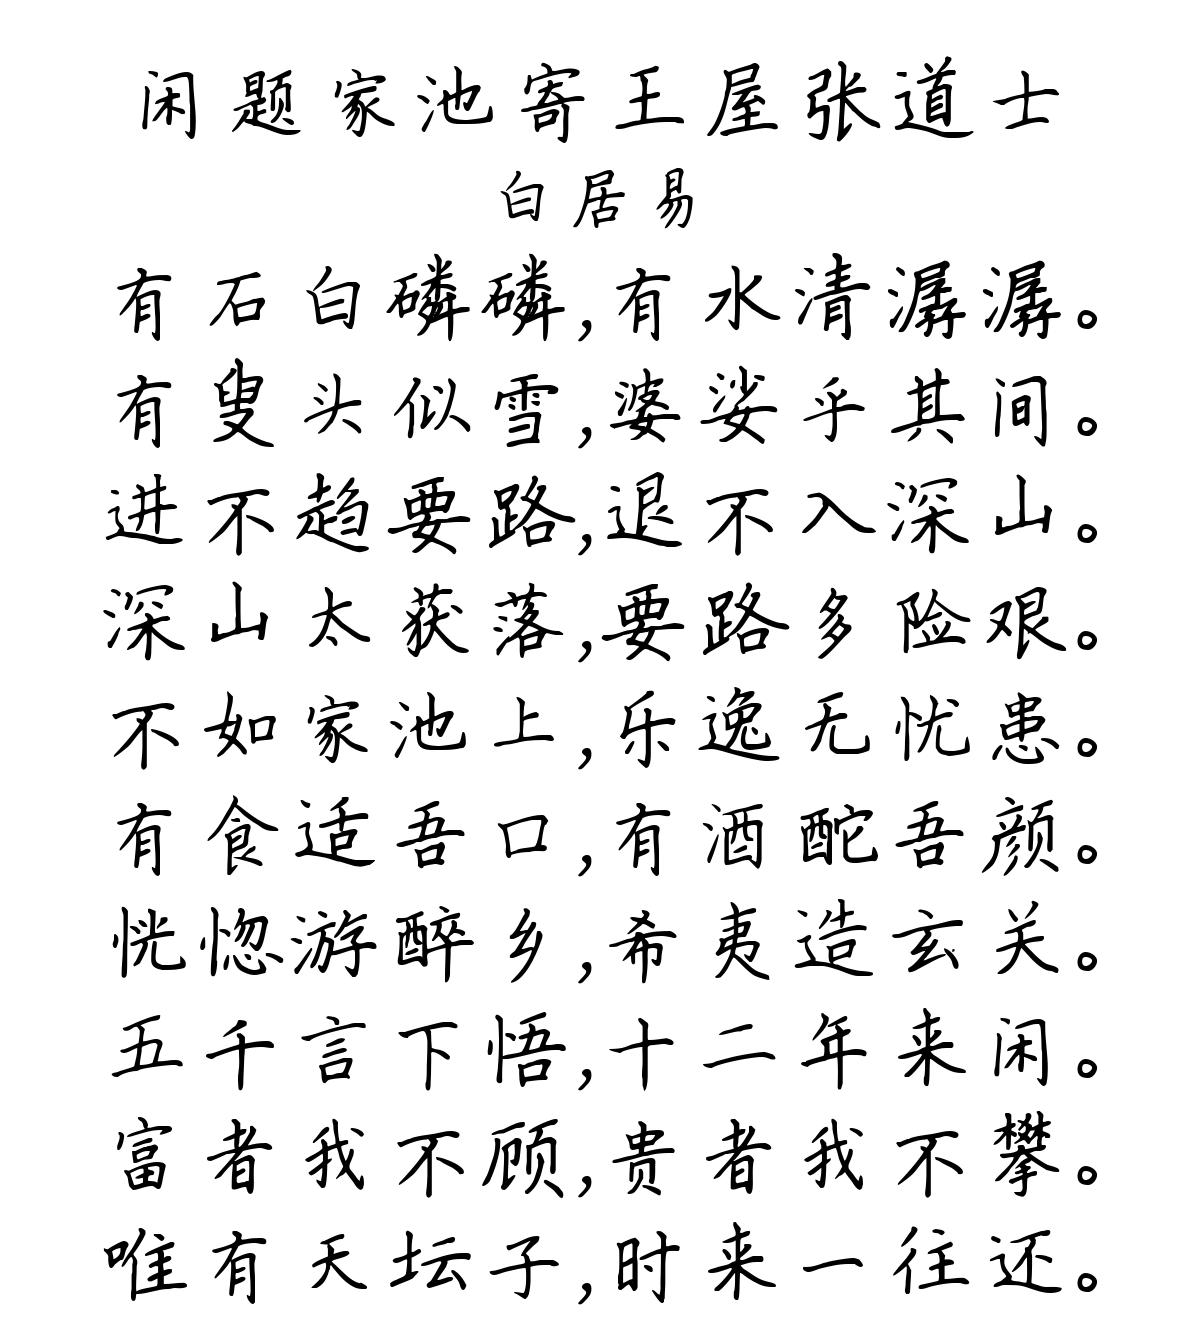 闲题家池寄王屋张道士
白居易
有石白磷磷,有水清潺潺。
有叟头似雪,婆娑乎其间。
进不趋要路,退不入深山。
深山太获落,要路多险艰。
不如家池上,乐逸无忧患。
有食适吾口,有酒酡吾颜。
恍惚游醉乡,希夷造玄关。
五千言下悟,十二年来闲。
富者我不顾,贵者我不攀。
唯有天坛子,时来一往还。